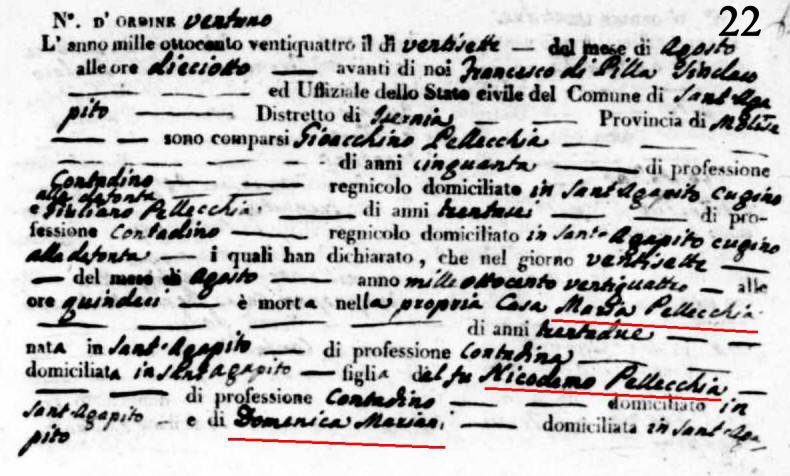 22
N°. D'ORDINE ventuno
L'anno mille ottocento ventiquattro il dì ventisette — del mese di Agosto
alle ore dieciotto — avanti di noi Francesco di Pilla Sindaco
— — — ed Uffiziale dello Stato civile del Comune di Sant'Aga
pito — Distretto di Isernia — Provincia di Molise
— — sono comparsi Gioacchino Pellecchia —
— — — di anni cinquanta — di professione
Contadino — regnicolo domiciliato in Sant'Agapito cugino
alla defonta
e Giuliano Pellecchia — di anni trentasei — di pro-
fessione Contadino — regnicolo domiciliato in Sant'Agapito cugino
alla defonta — i quali han dichiarato, che nel giorno ventisette —
— del mese di Agosto — anno mille ottocento ventiquattro — alle
ore quindeci — è morta nella propria Casa Maria Pellecchia
— — — — di anni trentadue — —
nata in Sant'Agapito — di professione Contadina —
domiciliata in Sant'Agapito — figlia del fu Nicodemo Pellecchia —
— di professione Contadino — — domiciliato in
Sant-Agapito — e di Domenica Mariani — domiciliata in Sant'Aga
pito